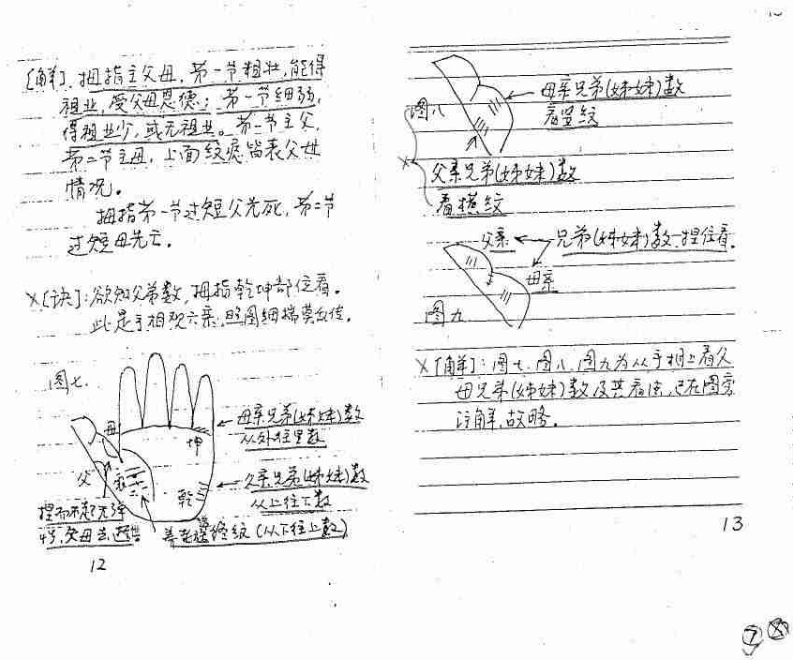 [解]: 拇指主父母，第一节粗壮，能得
祖业，受父母恩德；第一节细弱，
得祖业少，或无祖业。第一节主父，
第二节主母，上面纹痣皆表父母
情况。
拇指第一节过短父先死，第二节
过短母先亡。
×[诀]: 欲知父弟数，拇指乾坤部位看。
此是手相观六亲，照图细揣莫乱传。
图七.
母
父
坤
乾
母亲兄弟(姊妹)数
从外往里数
父亲兄弟(姊妹)数
从上往下数
养老送终纹 (从下往上数)
12
图八
母亲兄弟(姊妹)数
看竖纹
×
父亲兄弟(姊妹)数
看横纹
父亲
兄弟(姊妹)数 捏住看.
母亲
图九
×[解]: 图七、图八、图九为从手相上看父
母兄弟(姊妹)数及其看法，已在图旁
注解，故略。
13
7
8